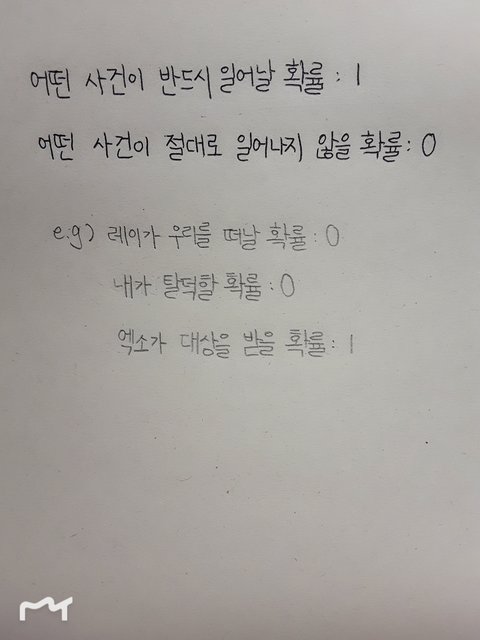 어떤 사건이 반드시 일어날 확률 : 1
어떤 사건이 절대로 일어나지 않을 확률 : 0
e.g) 레이가 우리를 떠날 확률 : 0
내가 탈덕할 확률 : 0
엑소가 대상을 받을 확률 : 1